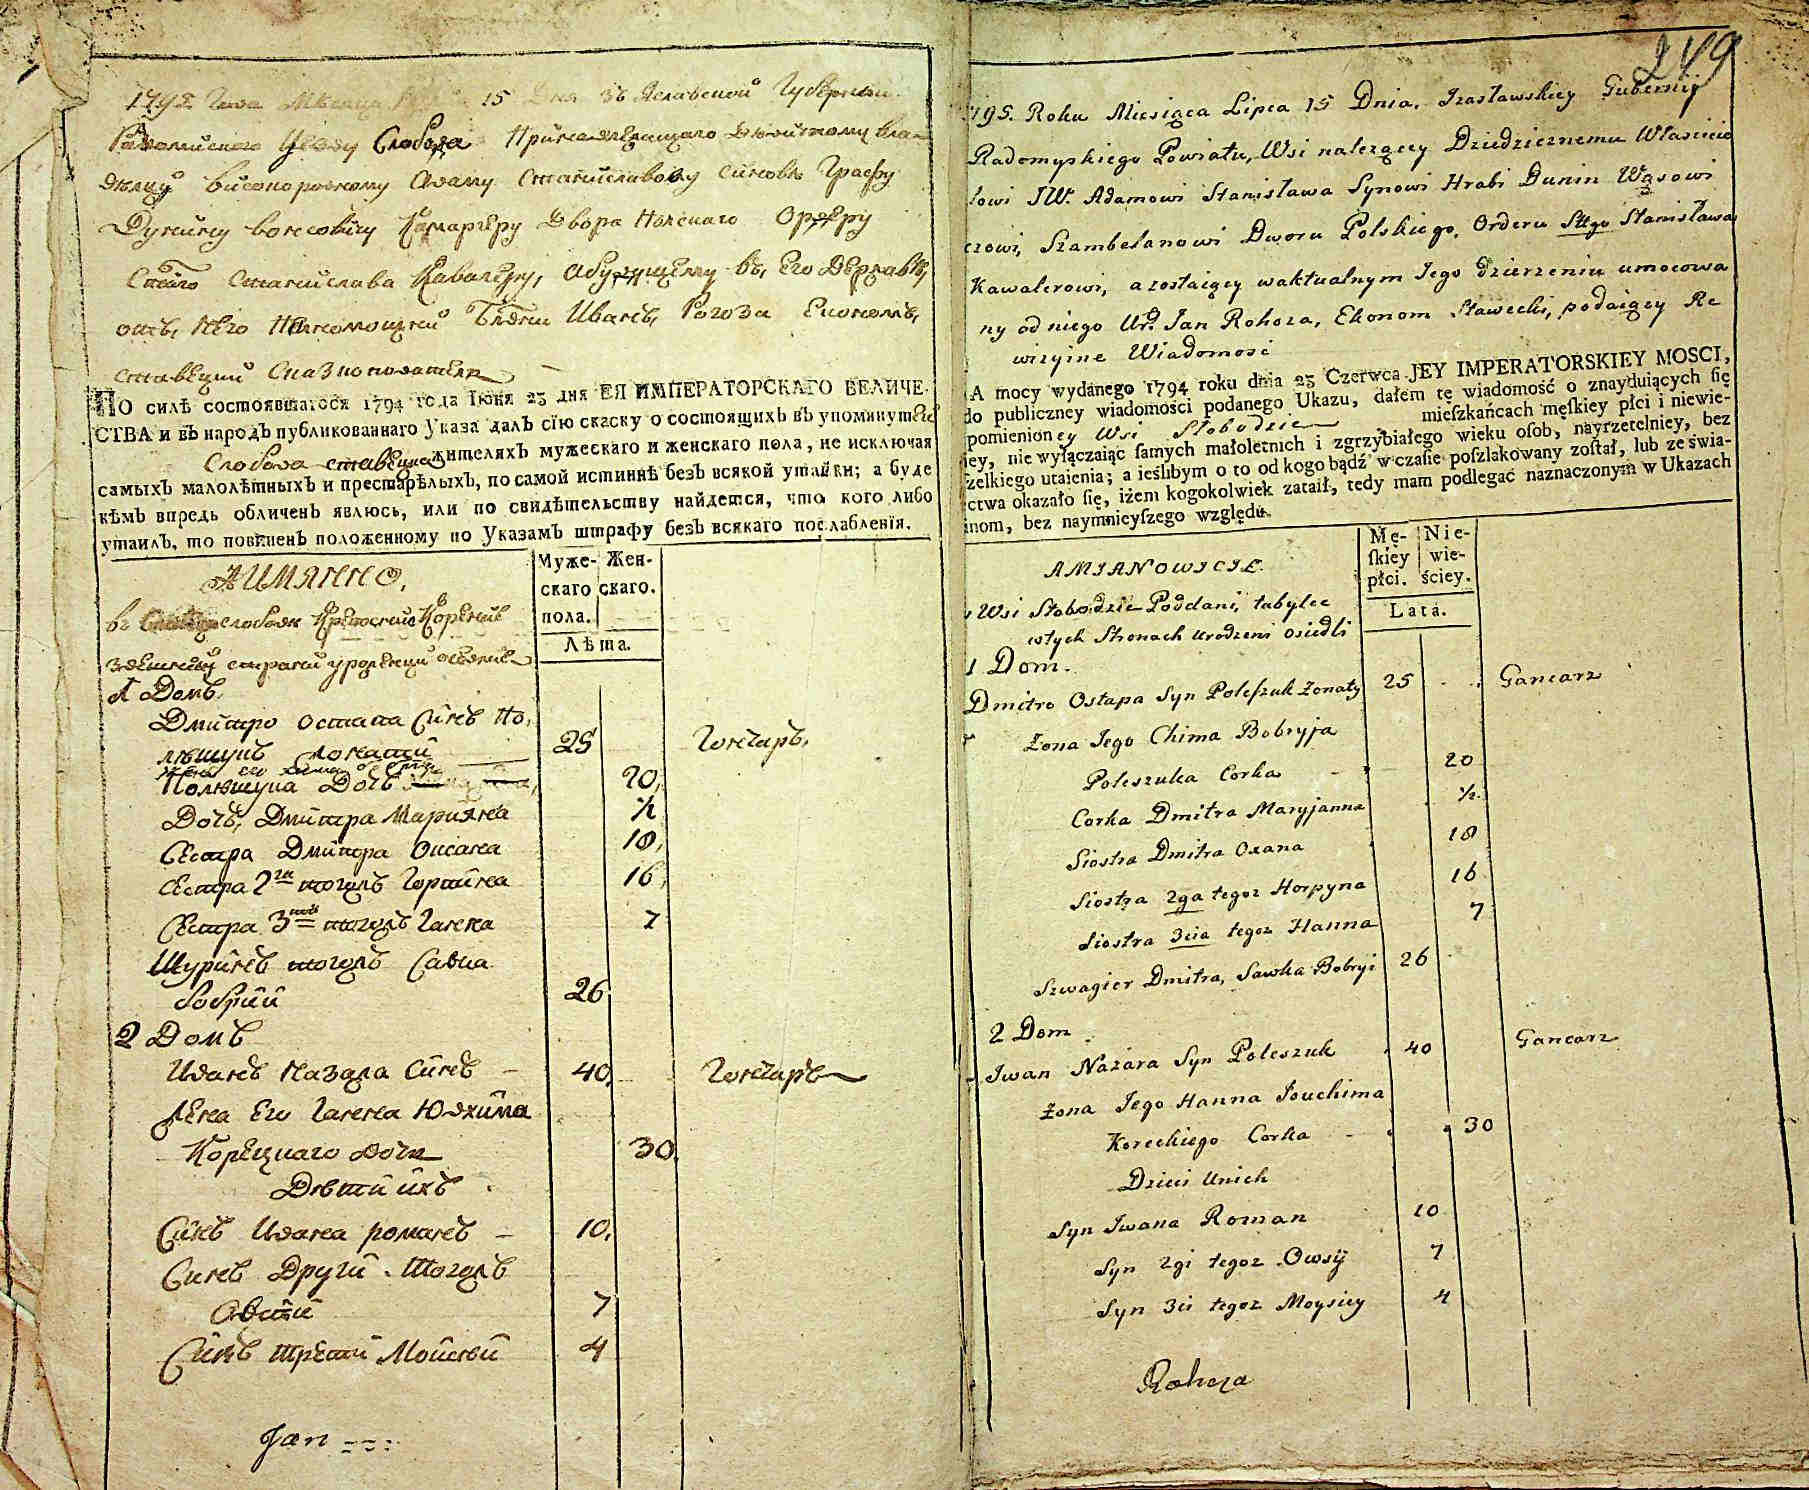 1795 Года Мѣсяца 15 Дня Зѣяславской Губернии
Радомиского Уѣзду Слобода Принадлежащаго Дѣдичному вла-
дѣлцу високородному Адаму Станиславову синовѣ Графу
Дунину вонсовичу Камаргеру Двора Полскаго Ордеру
Стаго Станислава Кавалеру, въ, Его Державѣ,
отъ, Него Иванъ, Рогоза Економъ,
ставецкий Сказкоподатель
ПО силѣ состоявшагося 1794 года Іюня 23 дня ЕЯ ИМПЕРАТОРСКАГО ВЕЛИЧЕ-
СТВА и въ народъ публикованнаго Указа далъ сїю скаску о состоящихъ въ упомянутей
Слобода ставецка жителяхъ мужескаго и женскаго пола, не исключая
самыхъ малолѣтныхъ и престарѣлыхъ, по самой истиннѣ безъ всякой утайки; а буде
кѣмъ впредь обличенъ явлюсь, или по свидѣтельству найдется, что кого либо
утаилъ, то повиненъ положенному по Указамъ штрафу безъ всякаго послабленїя.
АИМЯННО,
Муже-
скаго
пола.
Жен-
скаго.
Лѣта.
въ слободѣ
здешней сторони
1 Домъ
Дмитро остапа Синъ По,
лѣшукъ Жонатий 25 Гончаръ,
жена его Химa
Полѣшука Дочь 20,
Дочь, Дмитра Марияна ½
Сестра Дмитра Оксана 18,
Сестра 2га тогожъ Горпина 16,
Сестра 3тая тогожъ Ганна 7
Шуринъ тогожъ Савка
бобрий 26
2 Домъ
Иванъ Назара Синъ – 40, Гончаръ
Жена Его Ганна Юхима
Корецкаго дочь 30
Дѣти ихъ
Синъ Ивана романъ – 10,
Синъ Другий тогожъ
Овсий 7
Синъ третий Мойсей 4
Jan
249
795. Roku Miesiąca Lipca 15 Dnia, Izasławskiey Gubernij
Radomyskiego Powiatu, Wsi należący Dziedzicznemu Właścicie
lowi JW. Adamowi Stanisława Synowi Hrabi Dunin Wąsowi
czowi, Szambelanowi Dworu Polskiego, Orderu Sttgo Stanisława
Kawalerowi, a zostaiący waktualnym Jego dzierżeniu umocowa
ny od niego Ur. Jan Rohoza, Ekonom Stawecki, podaiący Re
wizyine Wiadomosć
A mocy wydanego 1794 roku dnia 23 Czerwca JEY IMPERATORSKIEY MOSCI,
do publiczney wiadomości podanego Ukazu, dałem tę wiadomość o znayduiących się
pomienioney Wsi Słobodzie mieszkańcach męskiey płci i niewie-
iey, nie wyłączaiąc samych małoletnich i zgrzybiałego wieku osob, nayrzetelniey, bez
zelkiego utaienia; a ieślibym o to od kogo bądź w czasie poszlakowany został, lub ze świa-
ctwa okazało się, iżem kogokolwiek zataił, tedy mam podlegać naznaczonym w Ukazach
inom, bez naymnieyszego względu.
AMIANOWICIE.
Mę-
skiey
płci.
Nie-
wie-
ściey.
Lata.
Wsi Słobodzie Poddani, tubylce
wtych Stronach urodzeni osiedli
1 Dom.
Dmitro Ostapa Syn Poleszuk żonaty 25 Gancarz
Żona Jego Chima Bobryja
Poleszuka Corka – 20
Corka Dmitra Maryjanna ½
Siostra Dmitra Oxana 18
Siostra 2ga tegoz Horpyna 16
Siostra 3cia tegoz Hanna 7
Szwagier Dmitra, Sawka Bobryi 26
2 Dom
Iwan Nazara Syn Poleszuk 40 Gancarz
Żona Jego Hanna Jouchima
Koreckiego Corka – 30
Dzieci Unich
Syn Iwana Roman 10
Syn 2gi tegoz Owsij 7
Syn 3ci tegoz Moysiey 4
Rohoza